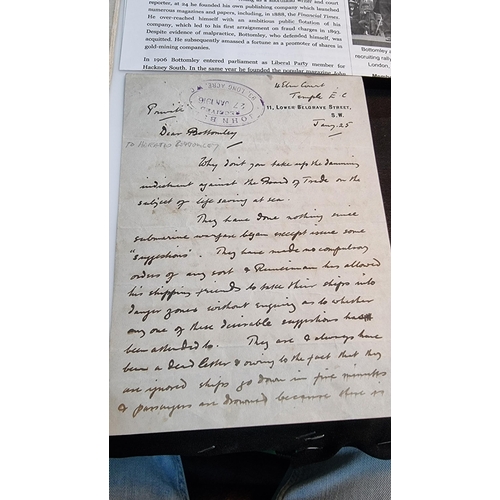 at 24 he founded his own publishing company which launched
numerous magazines and papers, including, in 1888, the Financial Times.
He over-reached himself with an ambitious public flotation of his
company, which led to his first arraignment on fraud charges in 1893.
Despite evidence of malpractice, Bottomley, who defended himself, was
acquitted. He subsequently amassed a fortune as a promoter of shares in
gold-mining companies.
In 1906 Bottomley entered parliament as Liberal Party member for
Hackney South. In the same year he founded the popular magazine John
Bottomley
recruiting rally
London,
4 Elm Court
Temple E C
11, Lower Belgrave Street,
S.W.
Jany 25
JOHN
27 JAN 1916
LONG ACRE
Private
Dear Bottomley
TO HORATIO BOTTOMLEY
Why don't you take up the damning
indictment against the Board of Trade on the
subject of life saving at sea.
They have done nothing since
submarine warfare began except issue some
"suggestions". They have made no compulsory
orders of any sort & Runciman has allowed
his shipping friends to take their ships into
danger zones without enquiring as to whether
any one of these desirable suggestions has
been attended to. They are & always have
been a dead letter & owing to the fact that they
are ignored ships go down in five minutes
& passengers are drowned because there is